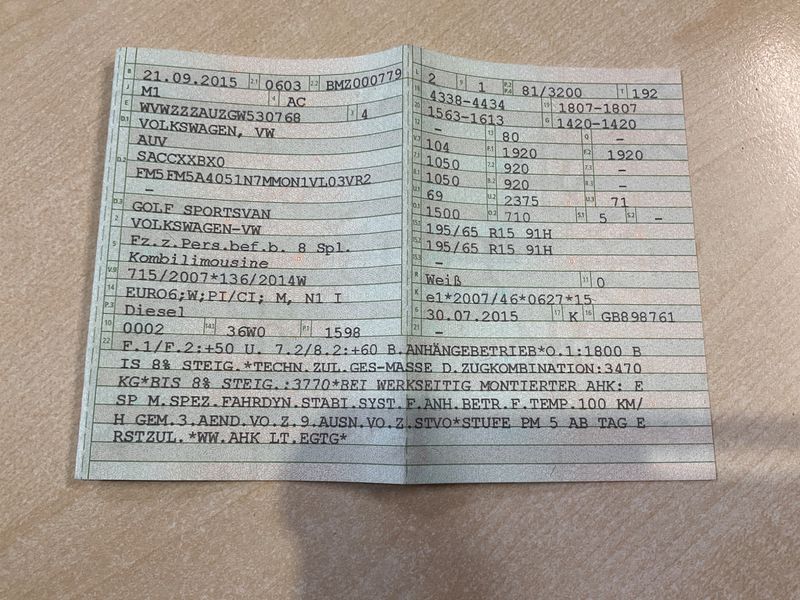 B 21.09.2015 2.1 0603 2.2 BMZ000779
J M1 4 AC
E WVWZZZAUZGW530768 3 4
D.1 VOLKSWAGEN, VW
AUV
D.2 SACCXXBX0
FM5FM5A4051N7MMON1VL03VR2
–
D.3 GOLF SPORTSVAN
2 VOLKSWAGEN-VW
5 Fz.z.Pers.bef.b. 8 Spl.
Kombilimousine
V.9 715/2007*136/2014W
14 EURO6;W;PI/CI; M, N1 I
P.3 Diesel
10 0002 14.1 36W0 P.1 1598
L 2 9 1 P.2 P.4 81/3200 T 192
18 4338-4434 19 1807-1807
20 1563-1613 G 1420-1420
12 – 13 80 Q –
V.7 104 F.1 1920 F.2 1920
7.1 1050 7.2 920 7.3 –
8.1 1050 8.2 920 8.3 –
U.1 69 U.2 2375 U.3 71
O.1 1500 O.2 710 S.1 5 S.2 –
15.1 195/65 R15 91H
15.2 195/65 R15 91H
15.3 –
R Weiß 11 0
K e1*2007/46*0627*15
6 30.07.2015 17 K 16 GB898761
21 –
22 F.1/F.2:+50 U. 7.2/8.2:+60 B.ANHÄNGEBETRIEB*O.1:1800 B
IS 8% STEIG.*TECHN.ZUL.GES-MASSE D.ZUGKOMBINATION:3470
KG*BIS 8% STEIG.:3770*BEI WERKSEITIG MONTIERTER AHK: E
SP M.SPEZ.FAHRDYN.STABI.SYST.F.ANH.BETR.F.TEMP.100 KM/
H GEM.3.AEND.VO.Z.9.AUSN.VO.Z.STVO*STUFE PM 5 AB TAG E
RSTZUL.*WW.AHK LT.EGTG*